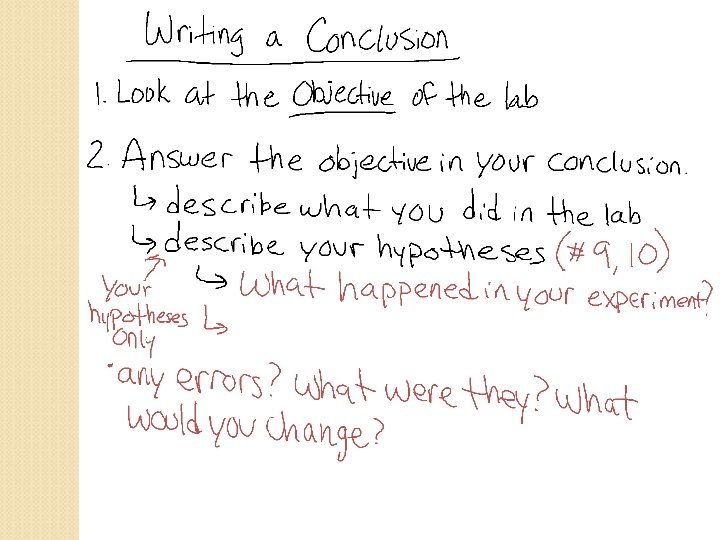 Writing a Conclusion
1. Look at the Objective of the lab
2. Answer the objective in your conclusion.
↳ describe what you did in the lab
↳ describe your hypotheses (# 9, 10)
your hypotheses only
↳ What happened in your experiment?
↳
• any errors? What were they? What
would you change?